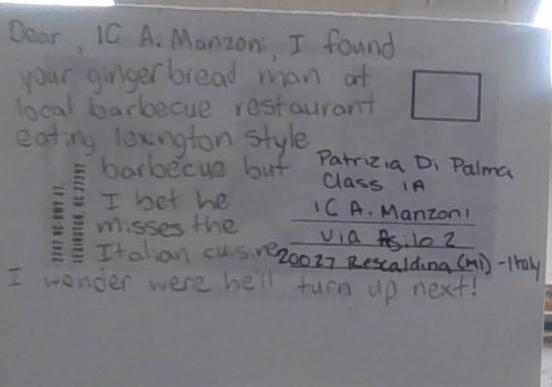 Dear, IC A. Manzoni, I found
your gingerbread man at
local barbecue restaurant
eating lexington style
barbecue but
I bet he
misses the
Italian cuisine
I wonder were he'll turn up next!
Patrizia Di Palma
Class 1A
IC A. Manzoni
Via Asilo 2
20027 Rescaldina (MI) - Italy
LEXINGTON, NC